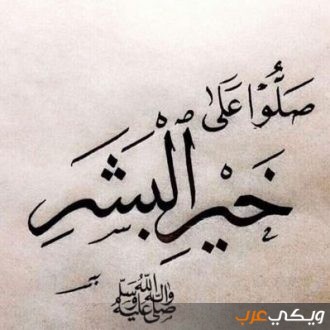 صَلُّوْا عَلَىٰ
خَيْرِ الْبَشَرِ
صلى الله عليه وآله وسلم
ويكي عرب